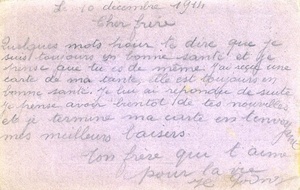 Le 10 décembre 1914
Cher frère
Quelques mots pour te dire que je
suis toujours en bonne santé et je
pense que tu es de même. J'ai reçu une
carte de ma tante, elle est toujours en
bonne santé. Je lui ai répondu de suite
Je pense avoir bientôt de tes nouvelles
et je termine ma carte en t'envoyant
mes meilleurs baisers.
Ton frère qui t'aime
pour la vie